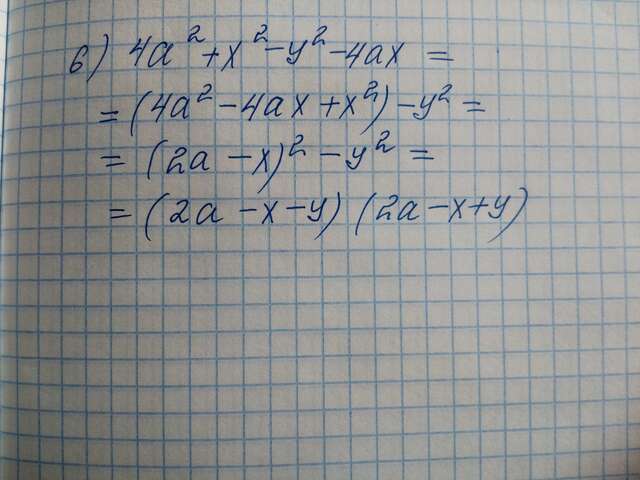 б) 4a² + x² - y² - 4ax =
= (4a² - 4ax + x²) - y² =
= (2a - x)² - y² =
= (2a - x - y) (2a - x + y)